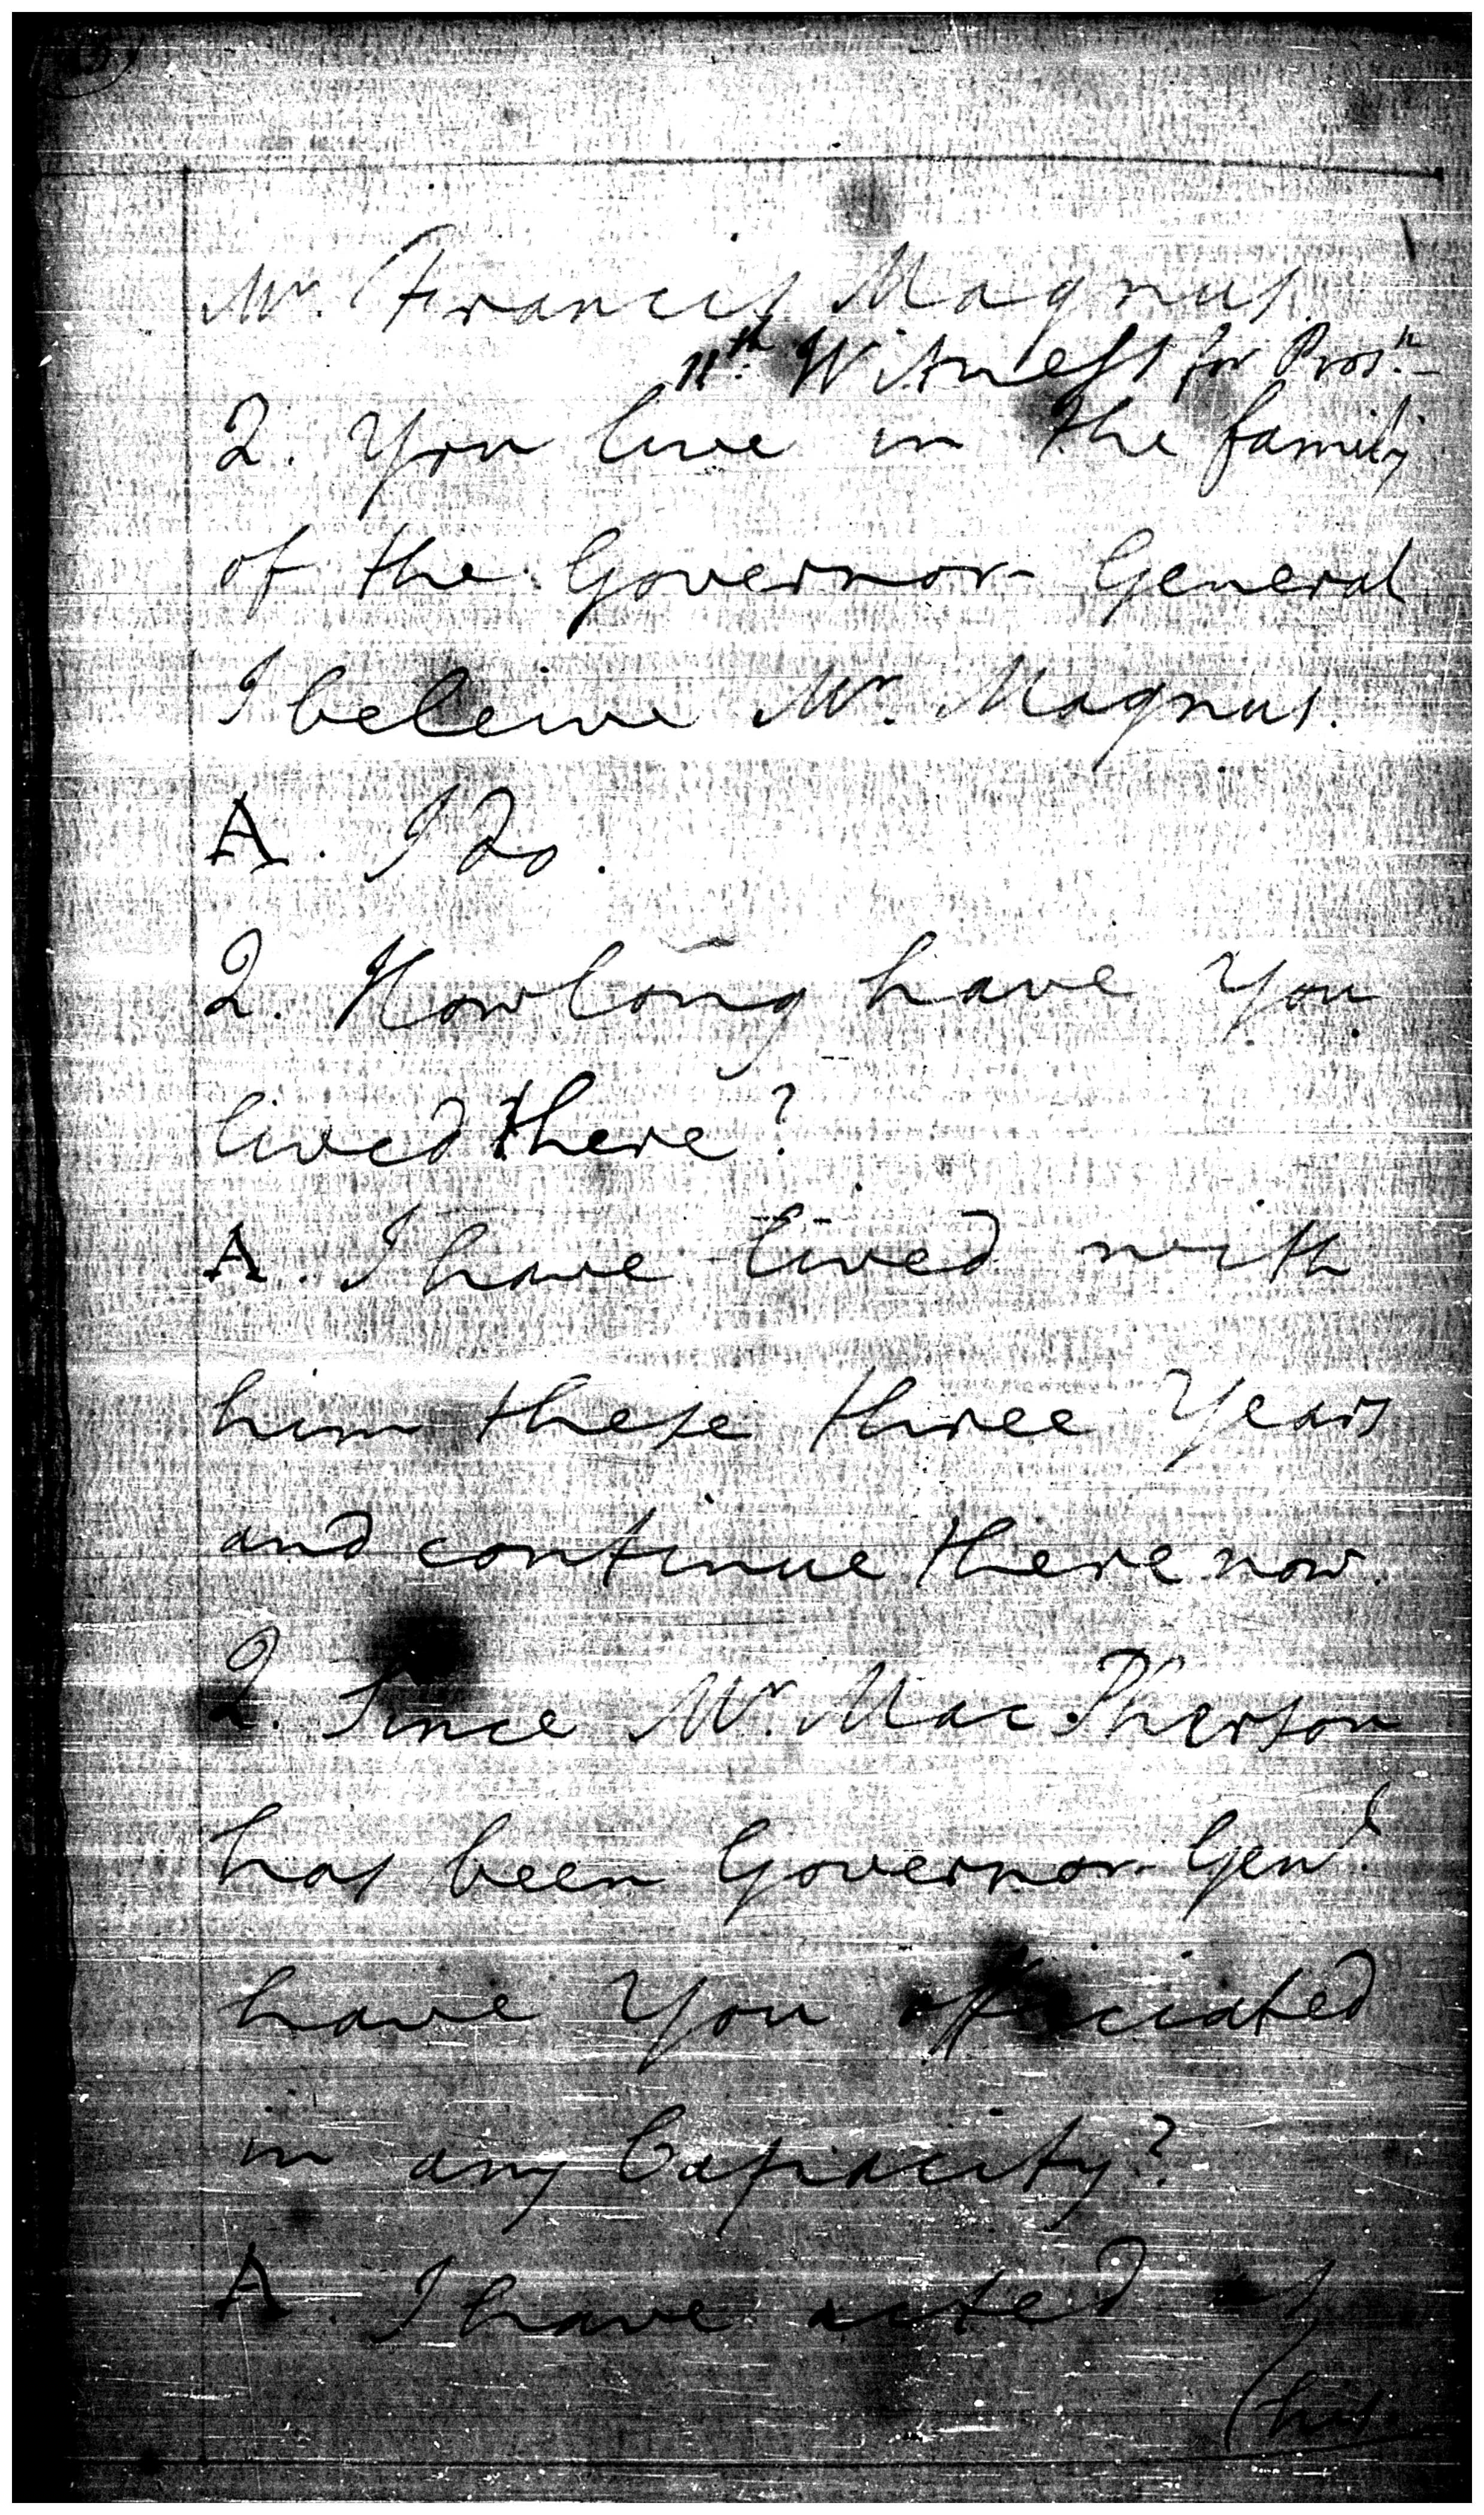 Mr. Francis Magnus.
11th. Witness for Pros.n
Q. You live in the family
of the Governor General
I beleive Mr. Magnus.
A. I do.
Q. How long have You
lived there?
A. I have lived with
him these three Years
and continue there now.
Q. Since Mr. Mac Pherson
has been Governor Genl.
have You officiated
in any Capacity?
A. I have acted as
(his